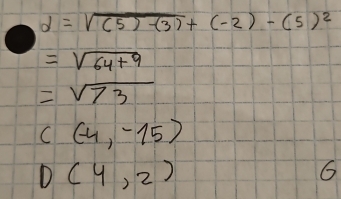 d = √(5) - (3) + (-2) - (5)²
= √64+9
= √73
C (-4, -15)
D (4, 2) 6